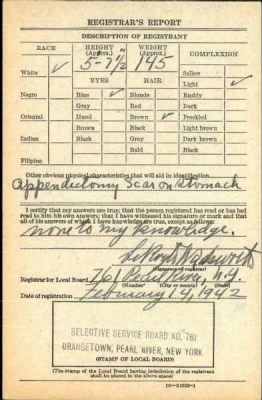 REGISTRAR'S REPORT
DESCRIPTION OF REGISTRANT
RACE HEIGHT (Approx.) WEIGHT (Approx.) COMPLEXION
5-7½" 145
White ✓ Sallow
EYES HAIR Light ✓
Negro Blue ✓ Blonde Ruddy
Gray Red Dark
Oriental Hazel Brown ✓ Freckled
Brown Black Light brown
Indian Black Gray Dark brown
Bald Black
Filipino
Other obvious physical characteristics that will aid in identification
Appendectomy Scar on Stomach
I certify that my answers are true; that the person registered has read or has had
read to him his own answers; that I have witnessed his signature or mark and that
all of his answers of which I have knowledge are true, except as follows:
none to my knowledge.
Wadsworth
(Signature of registrar)
Registrar for Local Board 761 Pearl River, N.Y.
(Number) (City or county) (State)
Date of registration February 14, 1942
SELECTIVE SERVICE BOARD NO. 761
ORANGETOWN, PEARL RIVER, NEW YORK
(STAMP OF LOCAL BOARD)
(The stamp of the Local Board having jurisdiction of the registrant
shall be placed in the above space)
16-21630-1